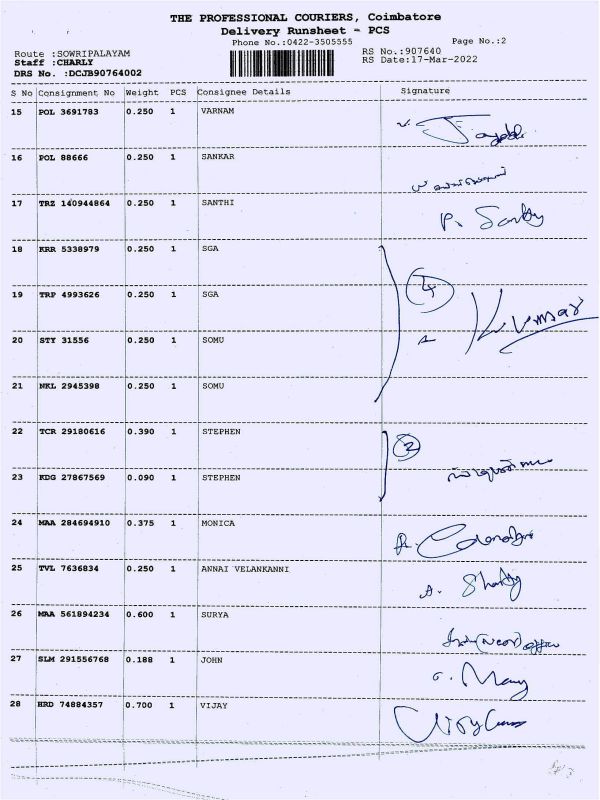 THE PROFESSIONAL COURIERS, Coimbatore
Delivery Runsheet - PCS
Phone No.:0422-3505555 Page No.:2
Route :SOWRIPALAYAM RS No.:907640
Staff :CHARLY RS Date:17-Mar-2022
DRS No. :DCJB90764002
S No Consignment No Weight PCS Consignee Details Signature
15 POL 3691783 0.250 1 VARNAM
16 POL 88666 0.250 1 SANKAR
17 TRZ 140944864 0.250 1 SANTHI
18 KRR 5338979 0.250 1 SGA
4
19 TRP 4993626 0.250 1 SGA
Kumar
20 STY 31556 0.250 1 SOMU
21 NKL 2945398 0.250 1 SOMU
22 TCR 29180616 0.390 1 STEPHEN
2
23 KDG 27867569 0.090 1 STEPHEN
24 MAA 284694910 0.375 1 MONICA
25 TVL 7636834 0.250 1 ANNAI VELANKANNI
26 MAA 561894234 0.600 1 SURYA
27 SLM 291556768 0.188 1 JOHN
28 HRD 74884357 0.700 1 VIJAY